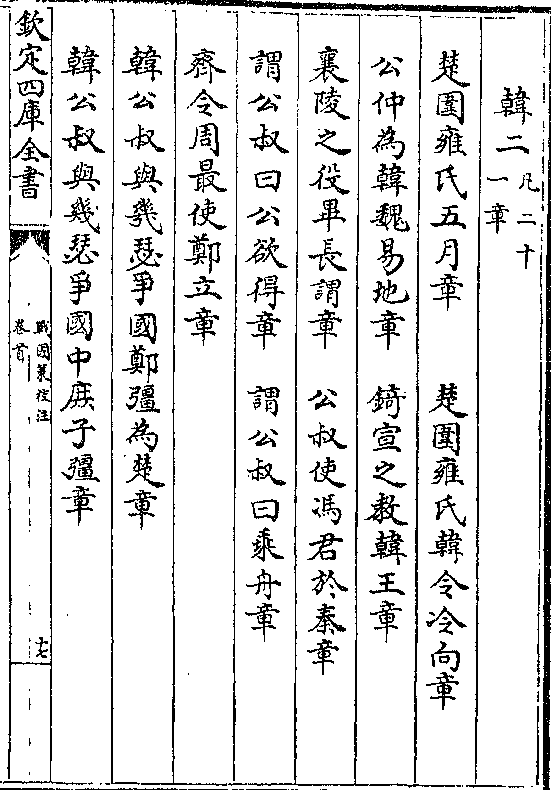 韓二 凡二十一章
楚圍雍氏五月章　楚圍雍氏韓令冷向章
公仲為韓魏易地章　錡宣之教韓王章
襄陵之役畢長謂章　公叔使馮君於秦章
謂公叔曰公欲得章　謂公叔曰乘舟章
齊令周最使鄭立章
韓公叔與幾瑟爭國鄭彊為楚章
韓公叔與幾瑟爭國中庶子彊章
欽定四庫全書
戰國策校注
卷首
十七